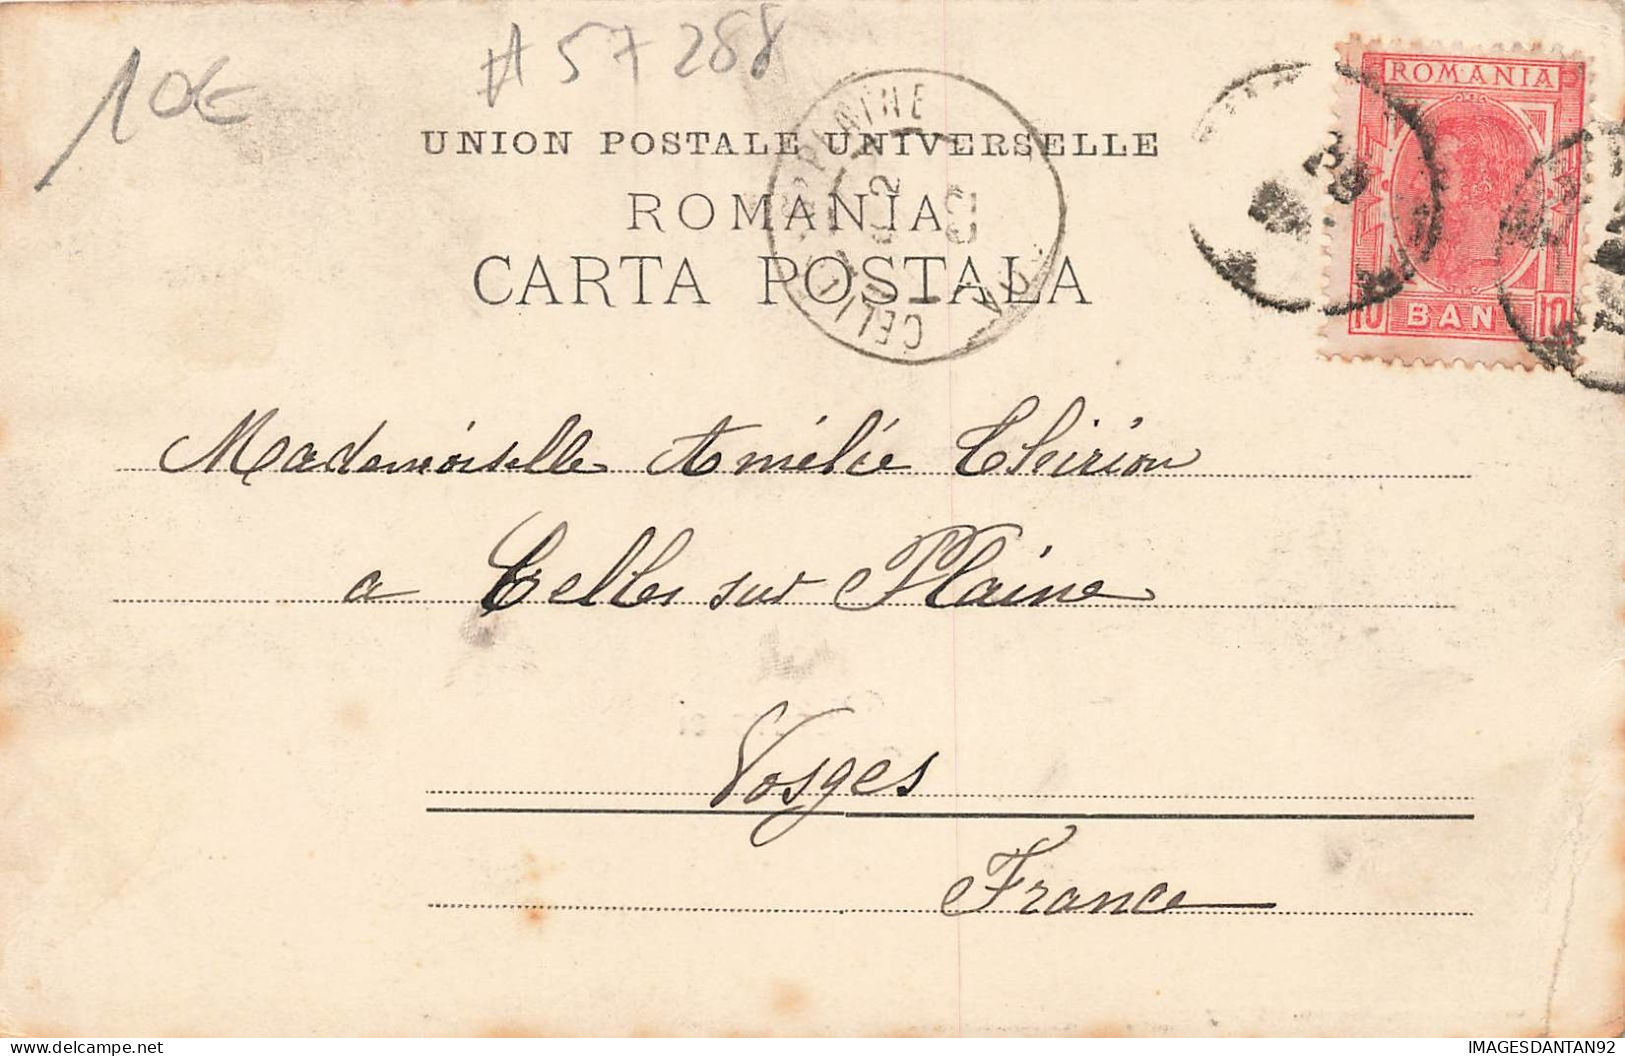 10€
#57288
UNION POSTALE UNIVERSELLE
ROMANIA
CARTA POSTALA
ROMANIA
10 BANI 10
Mademoiselle Amélie Thirion
a Celles sur Plaine
Vosges
France
IMAGESDANTAN92